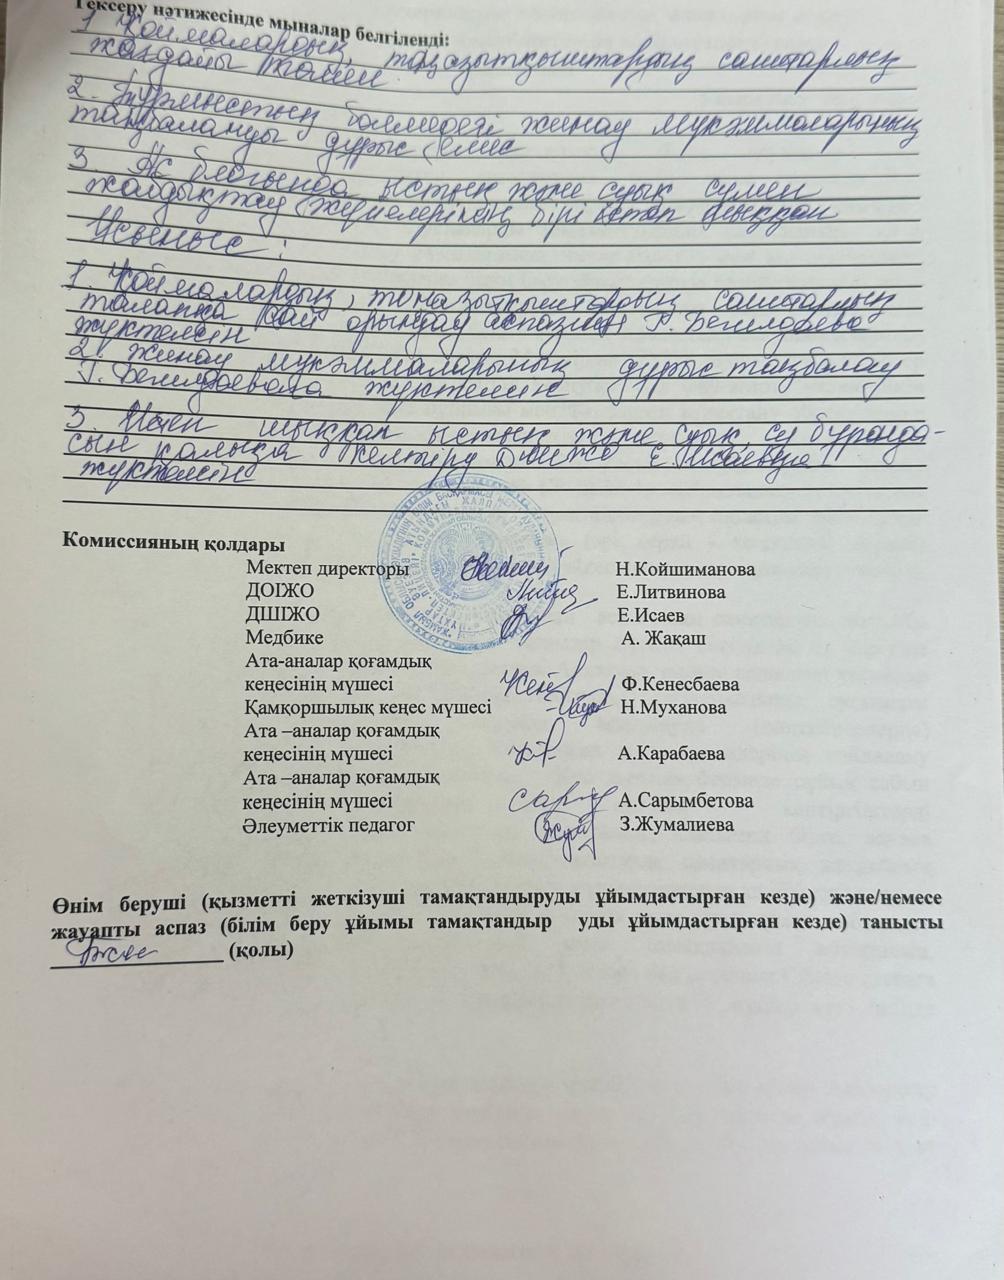 Тексеру нәтижесінде мыналар белгіленді:
1. Қоймалардың, тоңазытқыштардың санитарлық
жағдайы төмен
2. Тұрмыстық бөлмедегі жинау мүкәммаларының
таңбалануы дұрыс емес
3. Ас блогында ыстық және суық сумен
жабдықтау жүйелерінің бірі істен шыққан
Ұсыныс:
1. Қоймалардың, тоңазытқыштардың санитарлық
талапқа сай орындау аспазшы Г.
жүктелсін
2. Жинау мүкәммаларының дұрыс таңбалау
Г. жүктелсін
3. Истен шыққан ыстық және суық су бұранда-
сын қалыпқа келтіру Е. Исаевқа
жүктелсін
Комиссияның қолдары
Мектеп директоры Н.Койшиманова
ДОІЖО Е.Литвинова
ДШІЖО Е.Исаев
Медбике А. Жақаш
Ата-аналар қоғамдық
кеңесінің мүшесі Ф.Кенесбаева
Қамқоршылық кеңес мүшесі Н.Муханова
Ата –аналар қоғамдық
кеңесінің мүшесі А.Карабаева
Ата –аналар қоғамдық
кеңесінің мүшесі А.Сарымбетова
Әлеуметтік педагог З.Жумалиева
Өнім беруші (қызметті жеткізуші тамақтандыруды ұйымдастырған кезде) және/немесе
жауапты аспаз (білім беру ұйымы тамақтандыр уды ұйымдастырған кезде) танысты
(қолы)